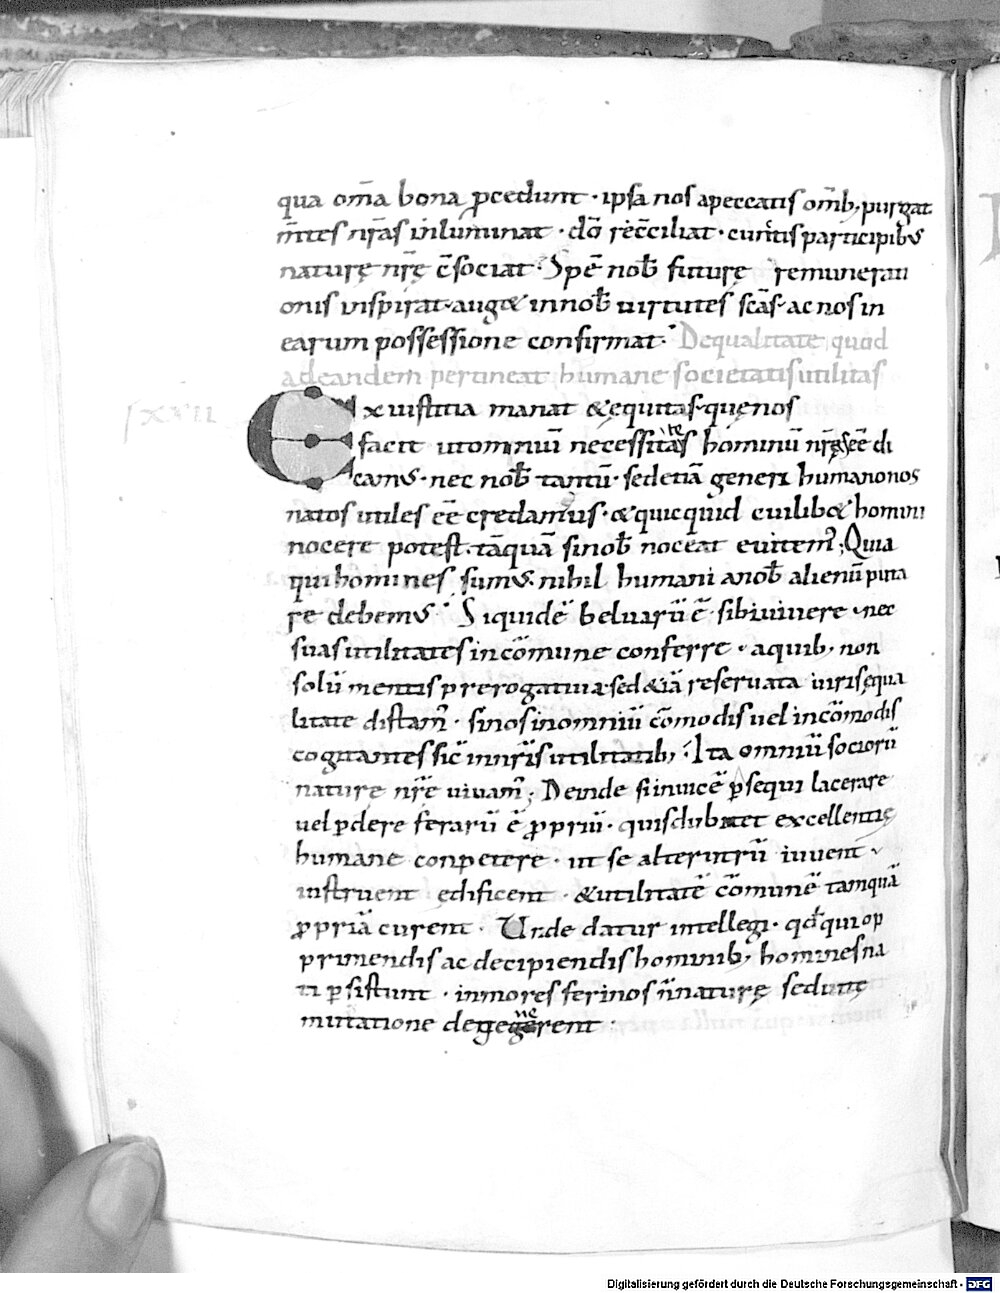 qua om̄a bona ꝓcedunt · ipsa nos apeccatis om̄ib; purgat
m̄tes nr̄as inluminat · dō rec̄ciliat · cunctis participibus
naturę nr̄ę c̄sociat · Spē nob̄ futurę remunerati
onis inspirat · auget innob̄ uirtutes sc̄as · ac nos in
earum possessione confirmat · Dequalitate quod
adeandem pertineat humane societatis utilitas
LXXVII
Ex iustitia manat & equitas · quę nos
facit ut omniū necessitates hominū nr̄as eē di
camus · nec nob̄ tantū · sed etiā generi humano nos
natos utiles eē credamus · & quicquid cuilibet homini
nocere potest · tāquā si nob̄ noceat euitem; Quia
qui homines sumus nihil humani anob̄ alienū puta
re debemus · Siquidē beluarū ē sibi uiuere · nec
suas utilitates incōmune conferre · a quib; non
solū mentis prerogatiua · sed & iā reseruata iuris equa
litate distam̄ · si nos in omniū cōmodis uel incōmodis
cogitantes sic̄ in nr̄is utilitatib; · Ita omniū sociorū
naturę nr̄ę uiuam̄ · Deinde si inuicē ꝑsequi lacerare
uel ꝑdere ferarū ē ꝓpriū · quis dubitet excellentię
humane conpetere · ut se alterutrū iuuent ·
instruent edificent · & utilitatē cōmunē tamquā
ꝓpriā curent · Unde datur intellegi · qd̄ qui op
primendis ac decipiendis hominib; homines na
ti ꝑsistunt · in mores ferinos n̄ naturę sed uitę
mutatione degenerent ·
Digitalisierung gefördert durch die Deutsche Forschungsgemeinschaft - DFG